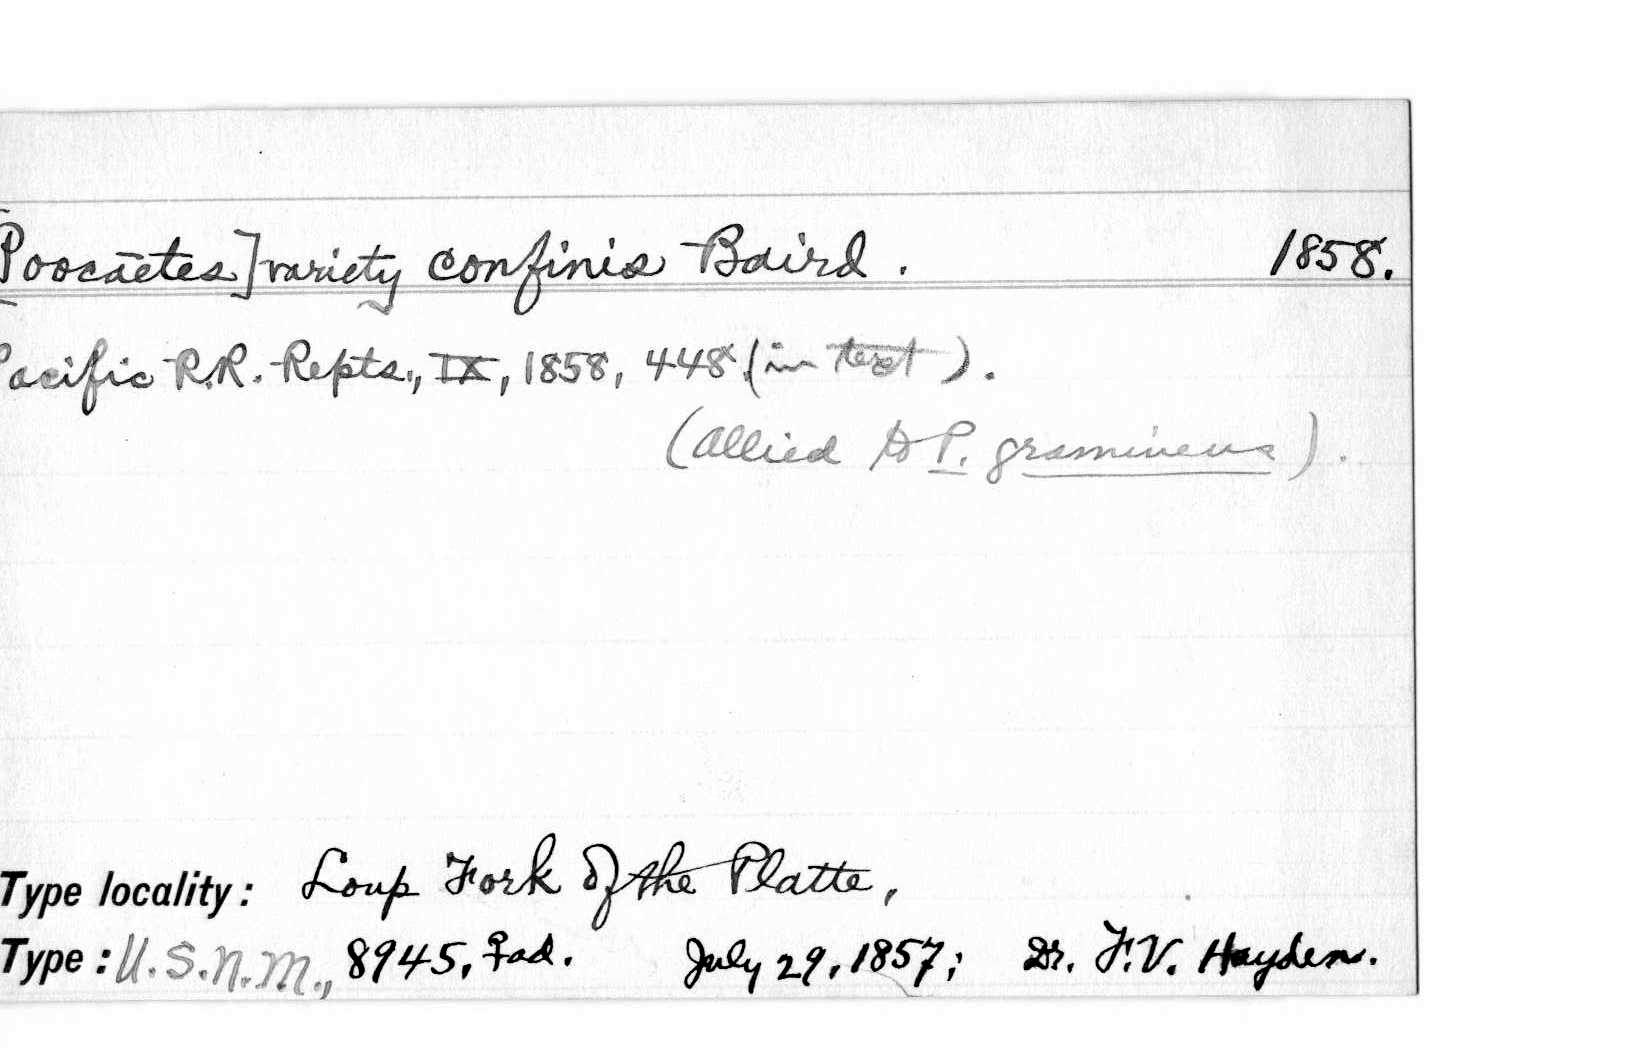 [Poocaetes] variety confinis Baird. 1858.
Pacific R.R. Repts., IX, 1858, 448 (in text).
(allied to P. gramineus).
Type locality: Loup Fork of the Platte,
Type: U.S.N.M., 8945, ♀ad. July 29, 1857; Dr. F.V. Hayden.